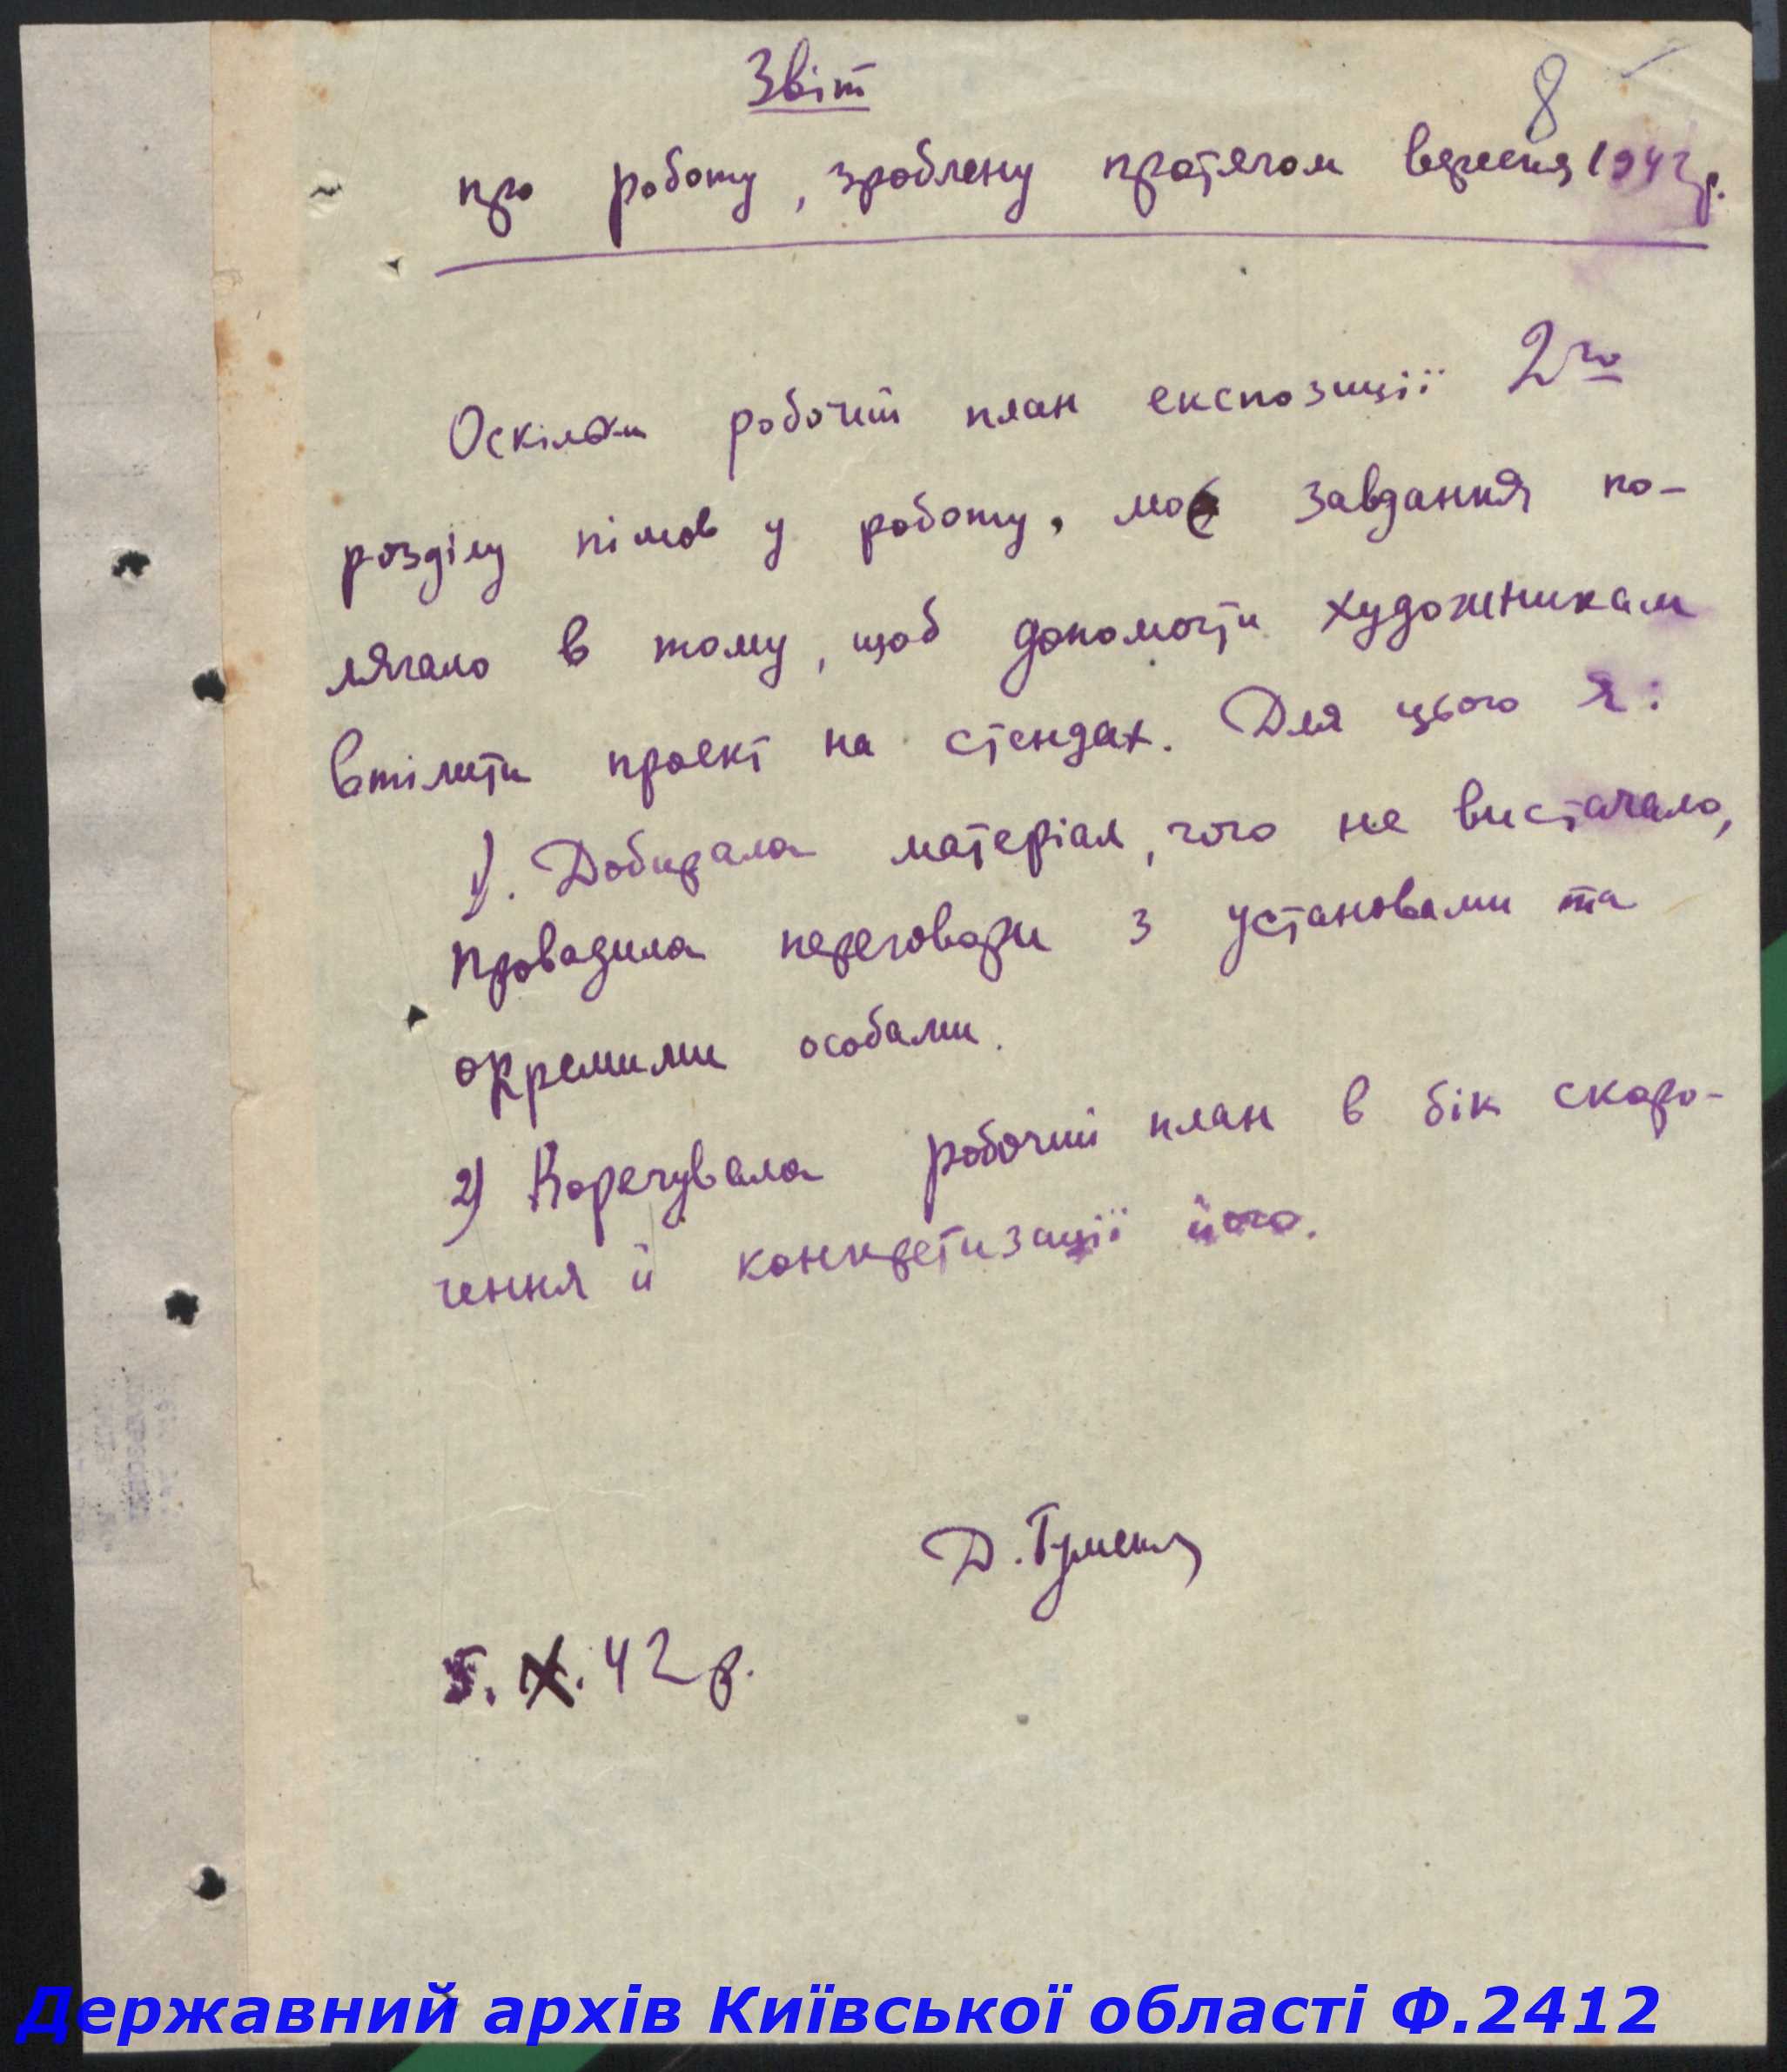 Звіт
8
про роботу, зроблену протягом вересня 1942 р.
Оскільки робочий план експозиції 2го
розділу пішов у роботу, моє завдання по-
лягало в тому, щоб допомогти художникам
втілити проект на стендах. Для цього я:
1). Добирала матеріал, чого не вистачало,
Провадила переговори з установами та
окремими особами.
2) Корегувала робочий план в бік скоро-
чення й конкретизації його.
Д. Гуменна
5. X. 42 р.
Державний архів Київської області Ф.2412